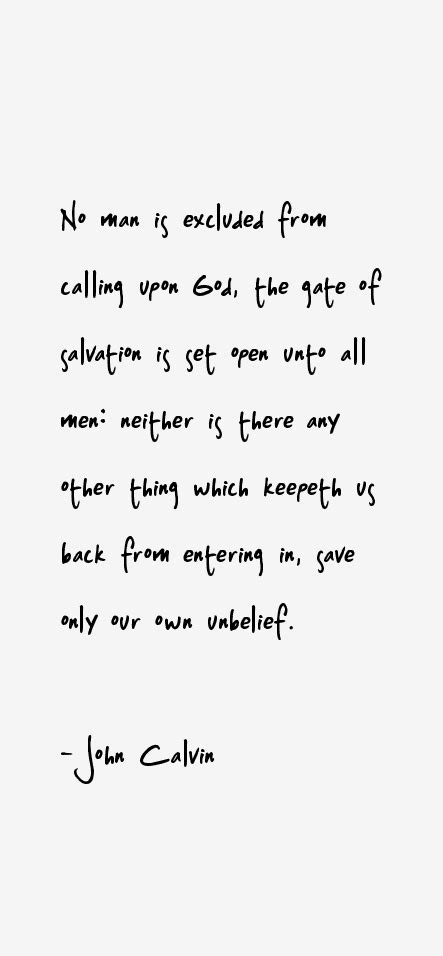 No man is excluded from
calling upon God, the gate of
salvation is set open unto all
men: neither is there any
other thing which keepeth us
back from entering in, save
only our own unbelief.
- John Calvin